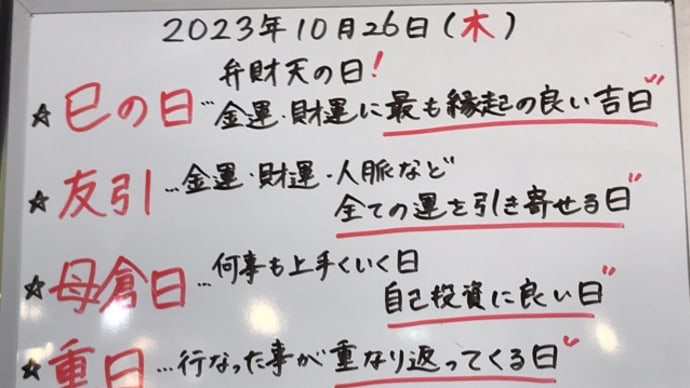 2023年10月26日(木)
弁財天の日!
☆巳の日…金運・財運に最も縁起の良い吉日"
☆友引…金運・財運・人脈など
全ての運を引き寄せる日"
☆母倉日…何事も上手くいく日
自己投資に良い日"
☆重日…行なった事が重なり返ってくる日"